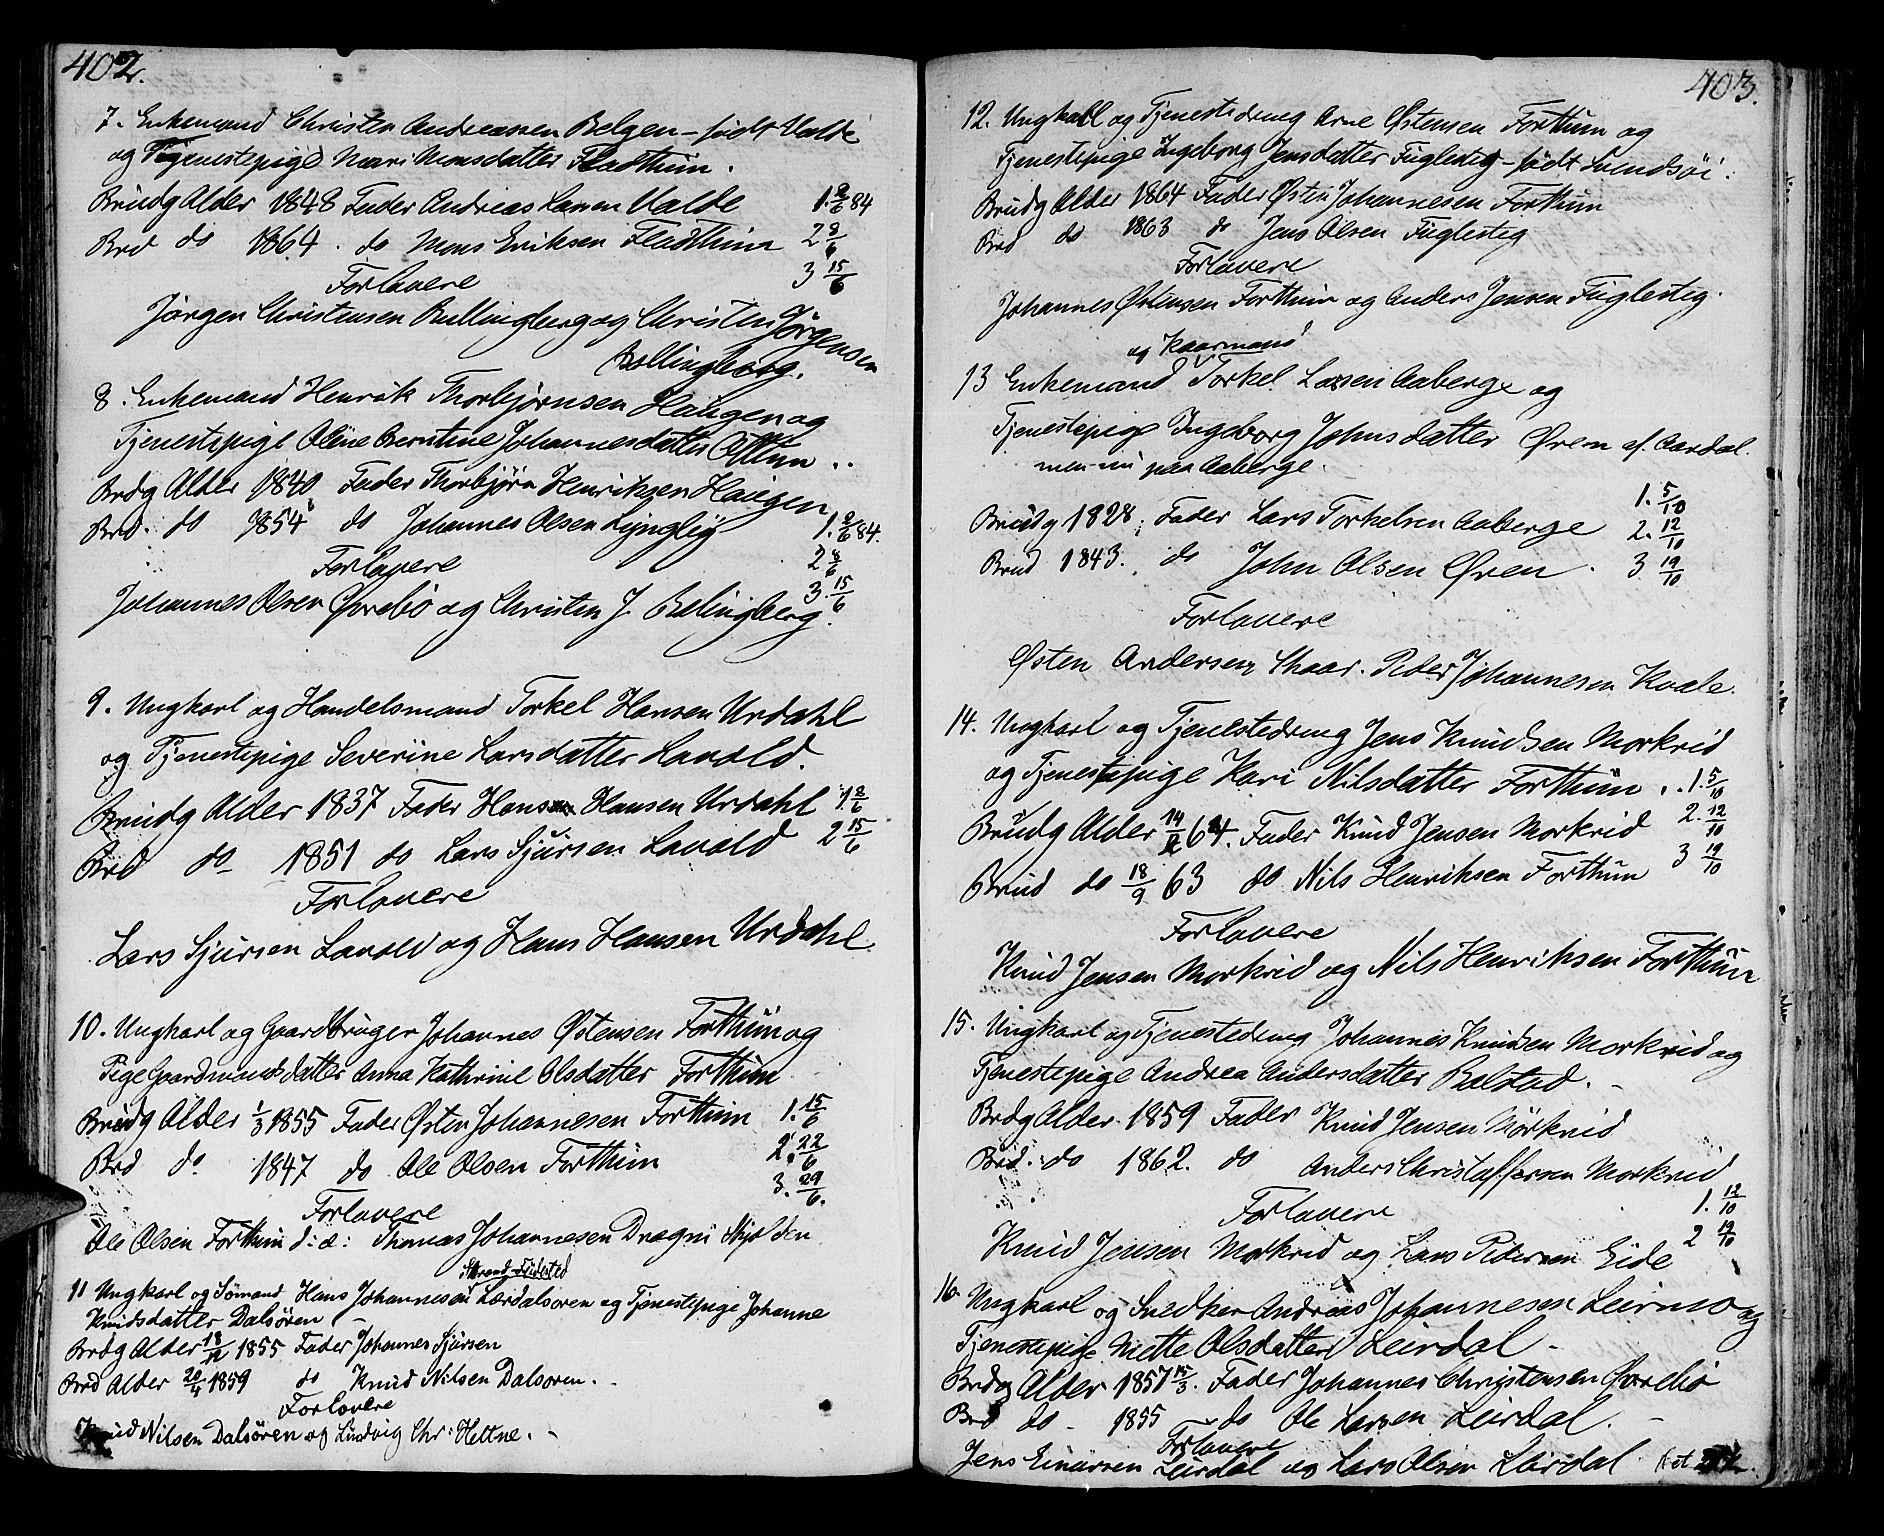 402.
7. Enkemand Christen Andreassen Belgen - født Valde
og Tjenestepige Mari Monsdatter Fladthum.
Brudg Alder 1848 Fader Andreas Larsen Valde 1. 8/6 84
Brd do 1864. do Mons Eriksen Fladthum 2 8/6
Forlovere 3 15/6
Jørgen Christensen Bullingberg og Christen Jørgensen
Bollingberg.
8. Enkemand Henrik Thorbjørnsen Haugen og
Tjenestepige Oline Berntine Johannesdatter
Brdg Alder 1840 Fader Thorbjørn Henriksen Haugen
Brd. do 1854 do Johannes Olsen Lynglig 1. 8/6 84.
Forlovere 2 8/6
Johannes Olsen Øvrebø og Christen J. Belingberg. 3. 15/6
9. Ungkarl og Handelsmand Torkel Hansen Urdahl
og Tjenestepige Severine Larsdatter Lavold.
Brudg Alder 1837 Fader Hans Hansen Urdahl 1. 8/6
Brd do 1851 do Lars Sjursen Lavold 2 15/6
Forlovere
Lars Sjursen Lavold og Hans Hansen Urdahl.
10. Ungkarl og Gaardbruger Johannes Østensen Forthun og
Pige Gaardmandsdatter Anna Kathrine Olsdatter Forthun
Brudg Alder 1/3 1855 Fader Østen Johannesen Forthun 1. 15/6
Brd do 1847 do Ole Olsen Forthun 2. 22/6
Forlovere 3. 29/6.
Ole Olsen Forthun d: æ: Thomas Johannesen Drægni Skjolden
Strandsidested
11 Ungkarl og Sømand Hans Johannesen Lærdalsøren og Tjenestepige Johanne
Knudsdatter Dalsøren -
Brdg Alder 18/12 1855 Fader Johannes Sjursen
Brd Alder 20/4 1859 do Knud Nilsen Dalsøren. -
Forlovere
Knud Nilsen Dalsøren og Ludvig Chr: Hettne. -
403.
12. Ungkarl og Tjenestedreng Arne Østensen Forthun og
Tjenestepige Ingeborg Jensdatter Fuglesteg - født Svendsøi.
Brudg Alder 1864 Fader Østen Johannesen Forthun
Brd do 1863 do Jens Olsen Fuglesteg
Forlovere
Johannes Østensen Forthun og Anders Jensen Fuglesteg.
og Kaarmand
13 Enkemand Torkel Larsen Aaberge og
Tjenestepige Ingeborg Johnsdatter Øren af Aardal.
men nu paa Aaberge.
Brudg 1828. Fader Lars Torkelsen Aaberge 1. 5/10
Brud 1843. do John Olsen Øren. 2. 12/10
3 19/10
Forlovere
Østen Andersen Skaar. Peder Johannesen Kvale.
14. Ungkarl og Tjenestedreng Jens Knudsen Morkrid
og Tjenestepige Kari Nilsdatter Forthun. 1. 5/10
Brudg Alder 14/12 64. Fader Knud Jensen Morkrid 2. 12/10
Brud do 18/9 63 do Nils Henriksen Forthun 3 19/10
Forlovere
Knud Jensen Morkrid og Nils Henriksen Forthun
15. Ungkarl og Tjenestedreng Johannes Knudsen Morkrid og
Tjenestepige Andrea Andersdatter Bolstad. -
Brdg Alder 1859 Fader Knud Jensen Mørkrid
Brd. do 1862. do Anders Christoffersen Morkrid
Forlovere 1. 12/10
Knud Jensen Morkrid og Lars Pedersen Eide 2 19/10
16. Ungkarl og Snedker Andreas Johannesen Leirmo og
Tjenestepige Mette Olsdatter Leirdal -
Brdg Alder 1857 15/3. Fader Johannes Christensen Øvrebø
Brd do - 1855 do Ole Larsen Leirdal. -
Forlovere
Jens Einarsen Leirdal og Lars Olsen Leirdal.